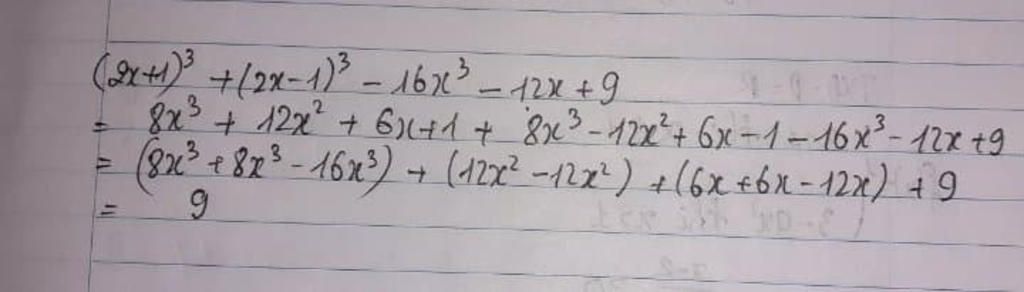 (2x+1)³ + (2x-1)³ - 16x³ - 12x + 9
= 8x³ + 12x² + 6x + 1 + 8x³ - 12x² + 6x - 1 - 16x³ - 12x + 9
= (8x³ + 8x³ - 16x³) + (12x² - 12x²) + (6x + 6x - 12x) + 9
= 9